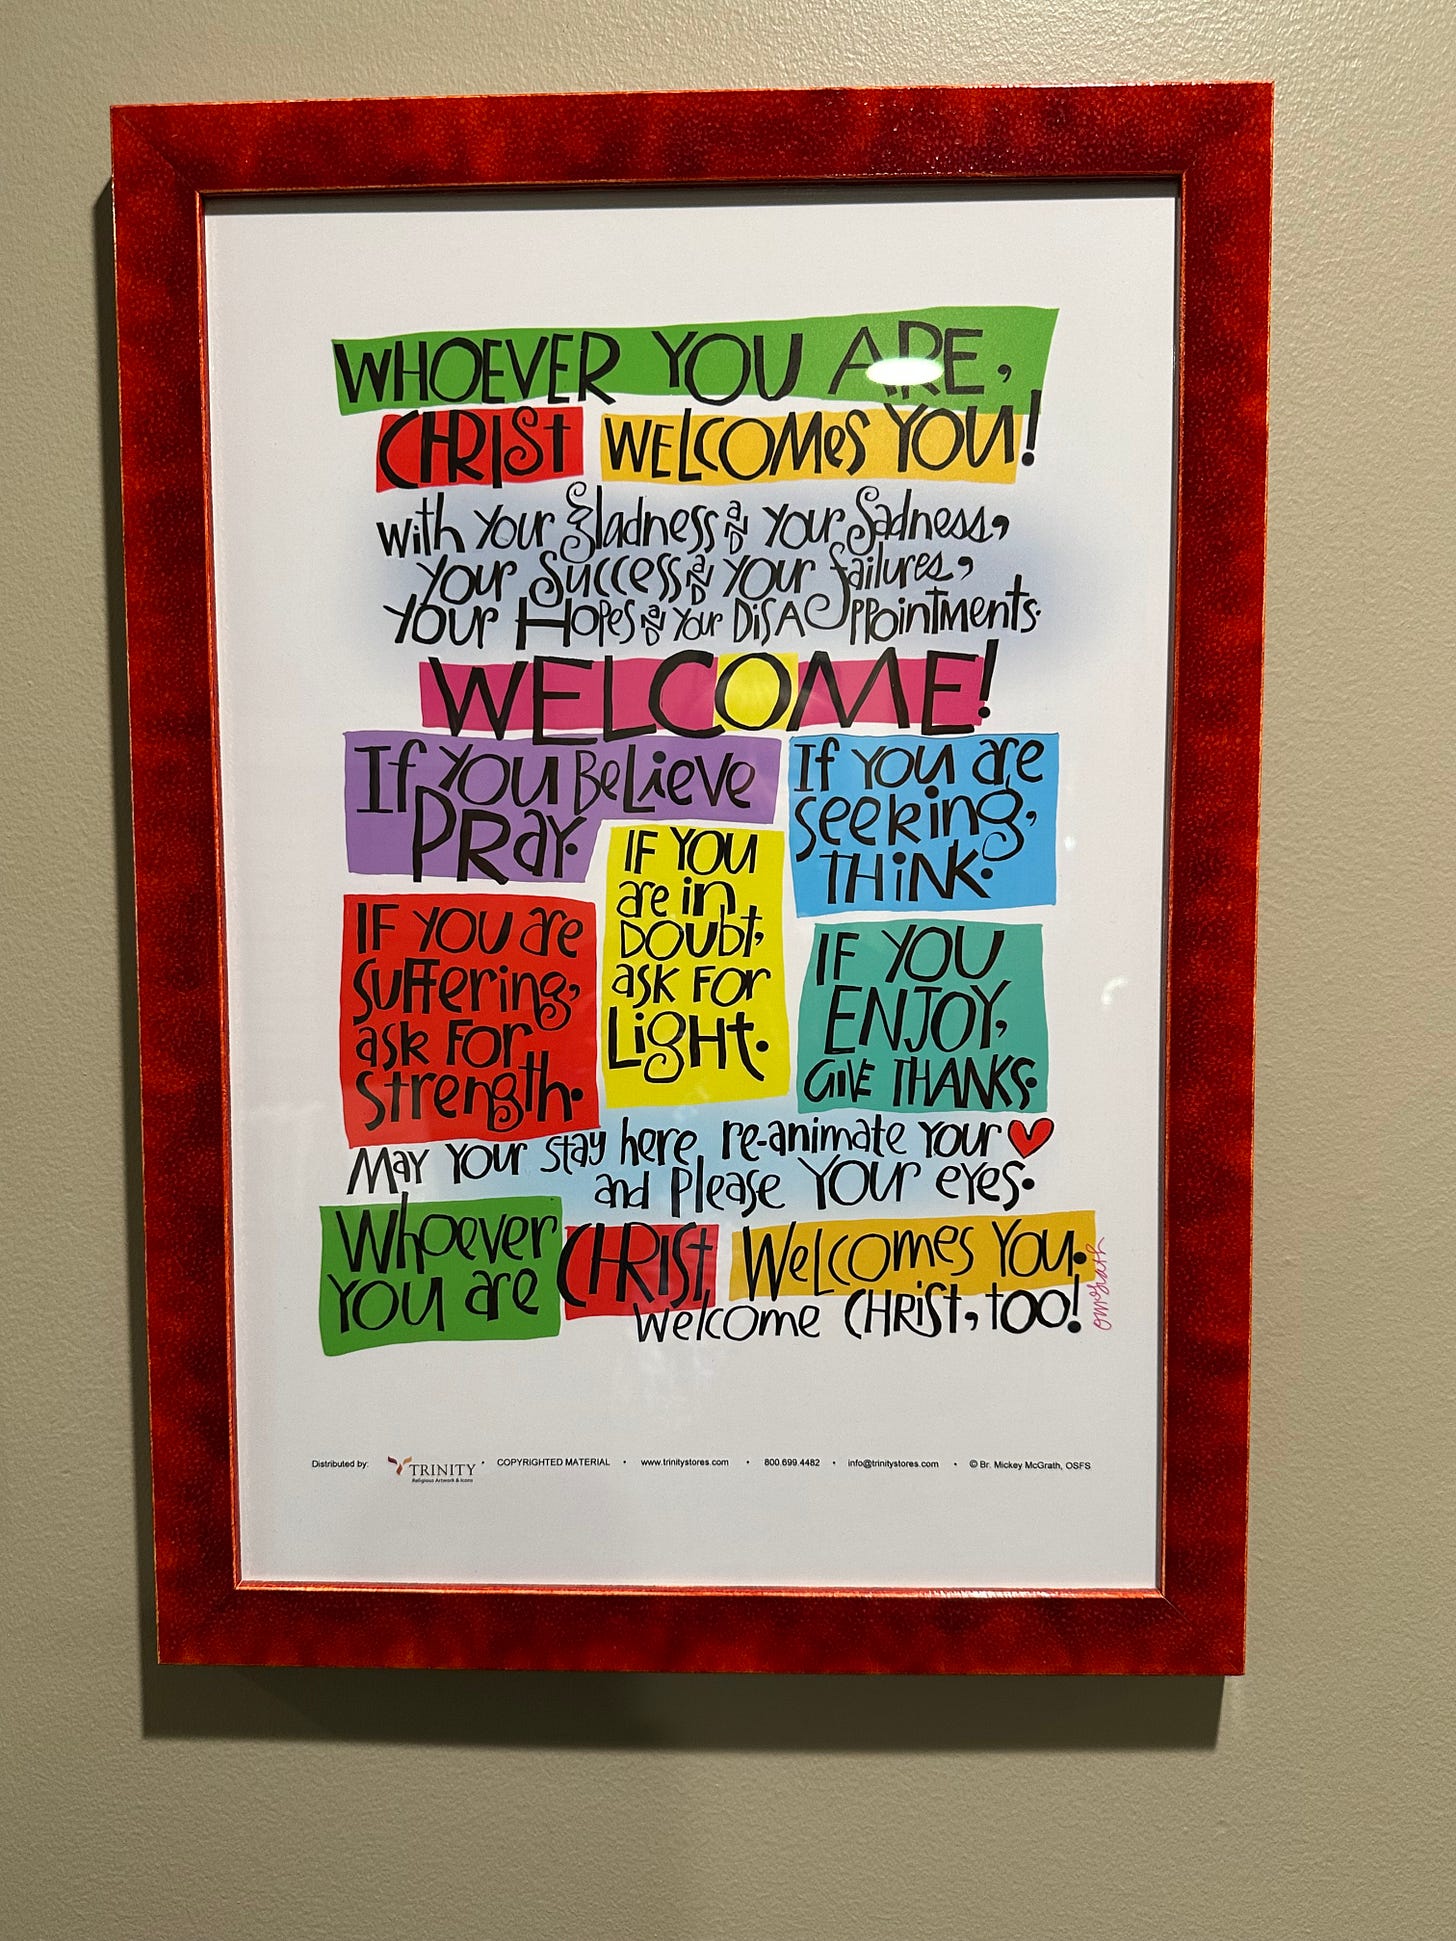 WHOEVER YOU ARE,
CHRIST WELCOMES YOU!
with your gladness AND your sadness,
your success AND your failures,
your Hopes AND your DISAPPointments.
WELCOME!
If you Believe
PRay.
If you are
seeking,
THiNK.
IF YOU
are in
DOUbt,
ask FOr
LigHt.
IF YOU are
suffering,
ask FOr
strength.
IF YOU
ENJOY,
GIVE THANKS.
May your stay here re-animate your ♥
and please your eyes.
Whoever
YOU are CHRIST Welcomes You.
welcome CHRIST, too!
omcgrath
Distributed by: TRINITY • COPYRIGHTED MATERIAL • www.trinitystores.com • 800.699.4482 • info@trinitystores.com • © Br. Mickey McGrath, OSFS
Religious Artwork & Icons